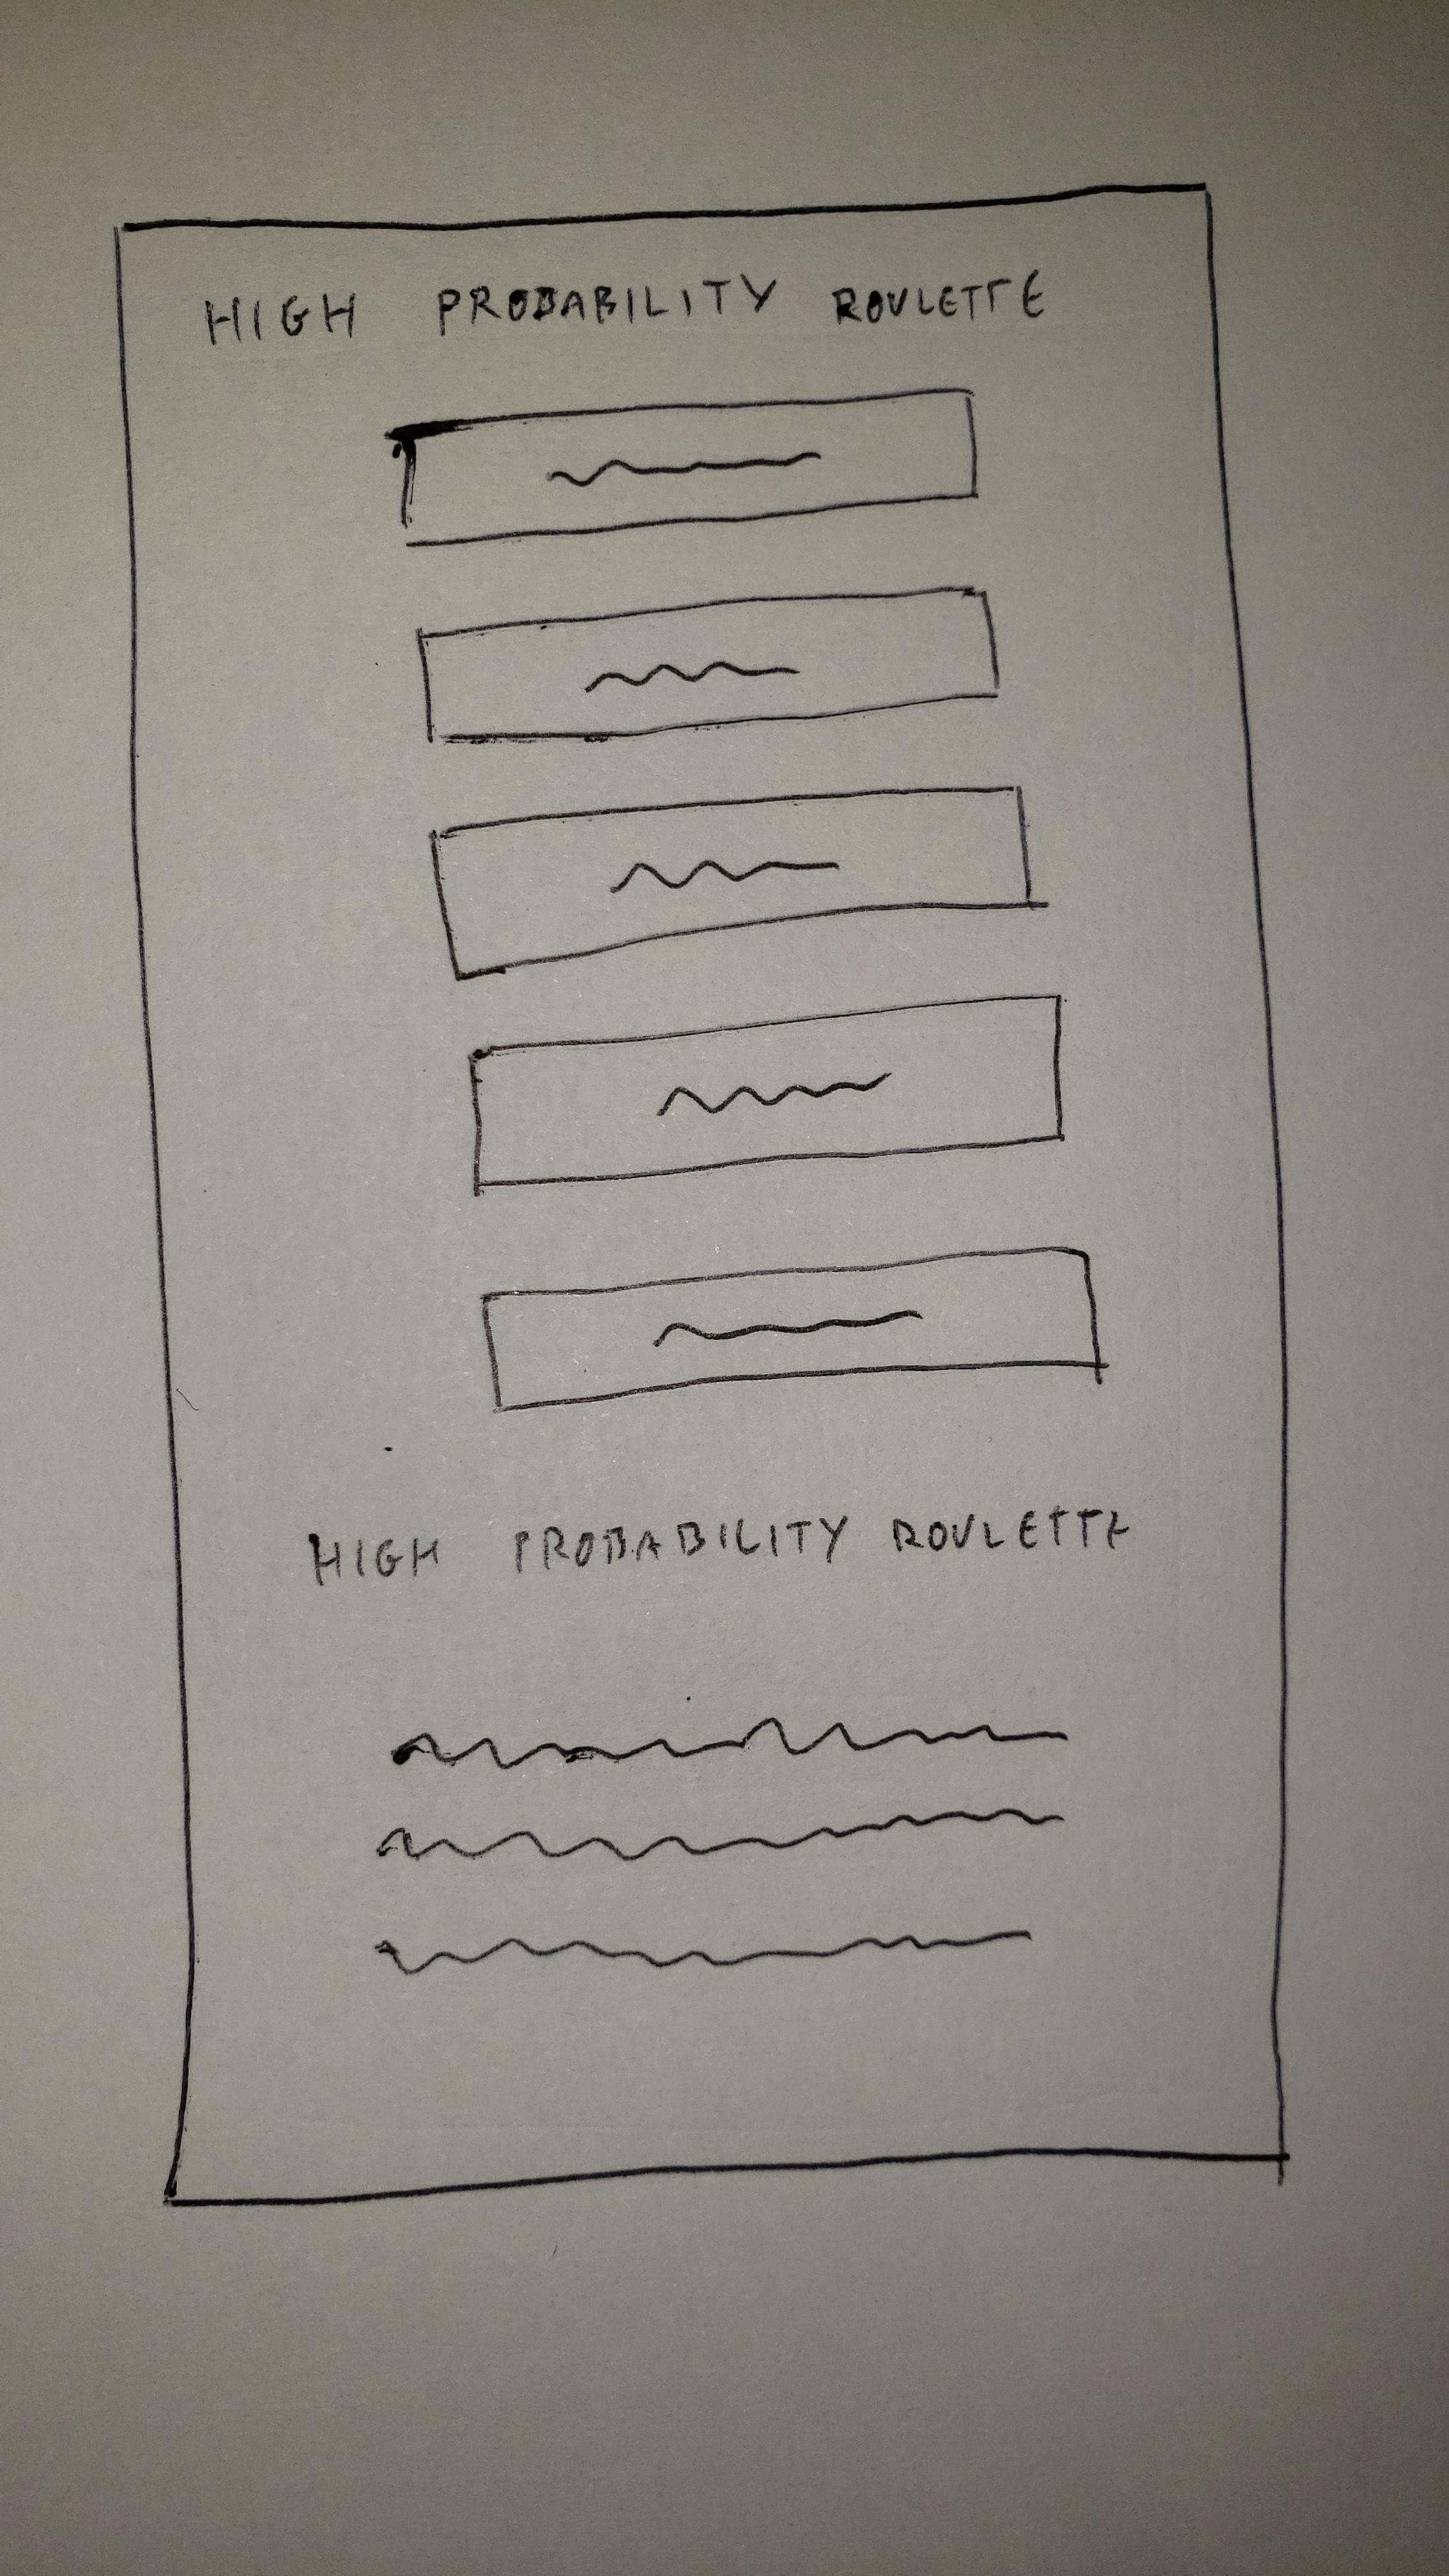 HIGH PROBABILITY ROULETTE
HIGH PROBABILITY ROULETTE